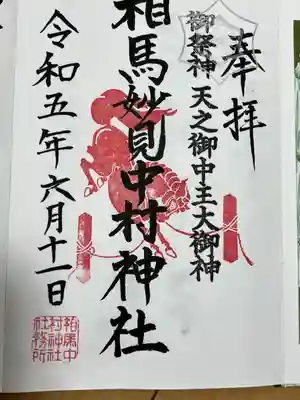 奉拝
御祭神 天之御中主大御神
相馬妙見中村神社
令和五年六月十一日
相馬中
村神社
社務所